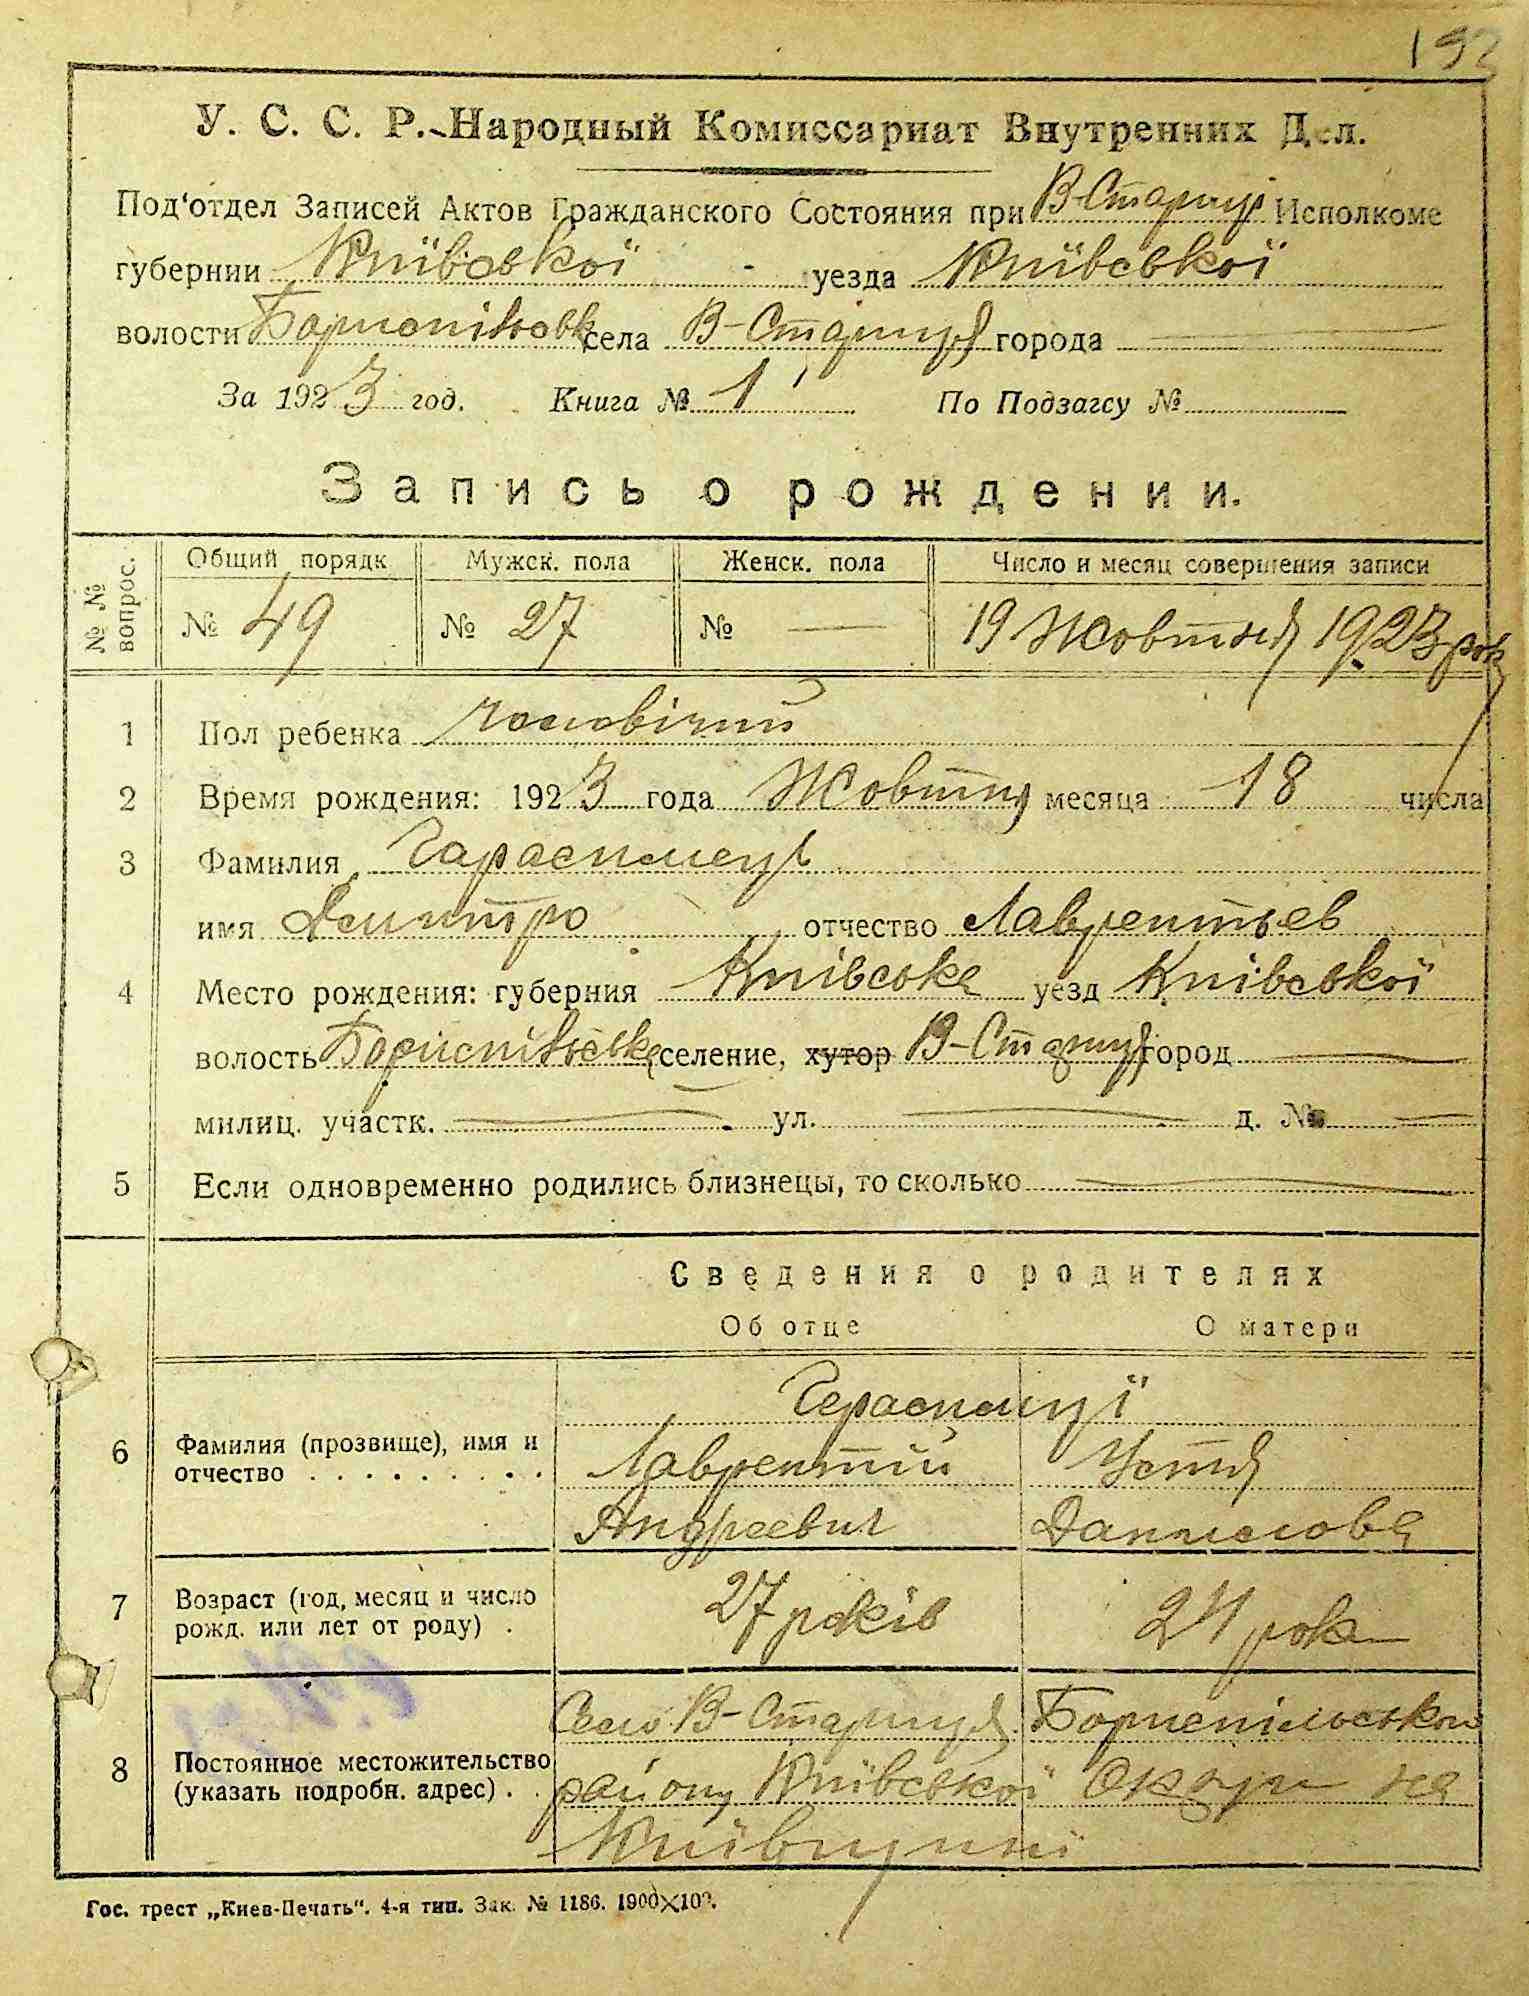 193
У. С. С. Р. Народный Комиссариат Внутренних Дел.
Под'отдел Записей Актов Гражданского Состояния при В-Стариця Исполкоме
губернии Київської уезда Київської
волости Бориспільськ села В-Стариця города
За 1923 год. Книга № 1 По Подзагсу №
Запись о рождении.
№ № вопрос. Общий порядк Мужск. пола Женск. пола Число и месяц совершения записи
№ 49 № 27 № — 19 Жовтня 1923 рок
1 Пол ребенка чоловічий
2 Время рождения: 1923 года Жовтня месяца 18 числа
3 Фамилия Гарасимець
имя Дмитро отчество Лаврентьев
4 Место рождения: губерния Київська уезд Київської
волость Бориспільська селение, хутор В-Стариця город —
милиц. участк. — ул. — д. № —
5 Если одновременно родились близнецы, то сколько —
Сведения о родителях
Об отце О матери
Герасимці
6 Фамилия (прозвище), имя и отчество Лаврентій Устя
Андреевич Данилова
7 Возраст (год, месяц и число рожд. или лет от роду) 27 років 24 рок
8 Постоянное местожительство (указать подробн. адрес) Село В-Стариця Бориспільського
району Київської Округи на
Київщині
Гос. трест „Киев-Печать“. 4-я тип. Зак. № 1186. 1900×100.